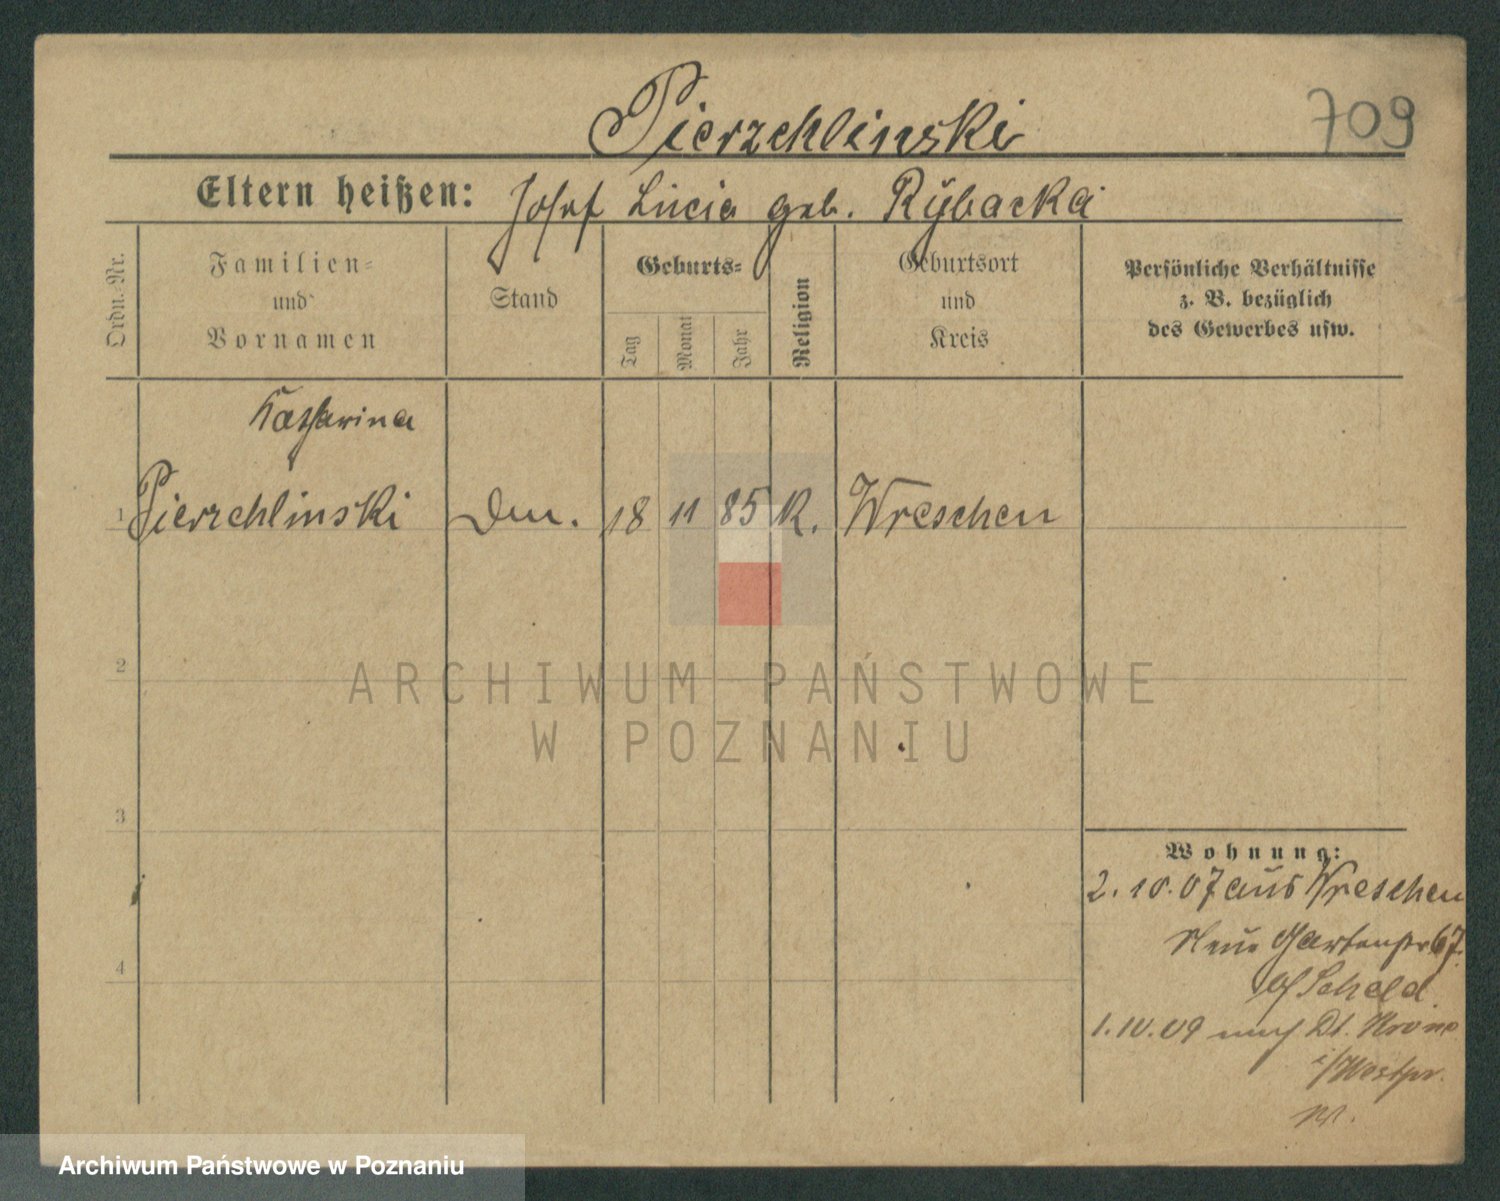 Pierzchlinski
709
Eltern heißen: Josef Lucia geb. Rybacka
Ordn. Nr.
Familien-
und
Vornamen
Stand
Geburts-
Tag
Monat
Jahr
Religion
Geburtsort
und
Kreis
Persönliche Verhältnisse
z. B. bezüglich
des Gewerbes usw.
Katharina
1 Pierzchlinski 18 11 85 K. Wreschen
2
3
4
ARCHIWUM PAŃSTWOWE
W POZNANIU
Wohnung:
2.10.07 aus Wreschen
Neue Gartenstr 67
b/ Scheld
1.10.09 nach Dt. Krone
i/Westpr.
Archiwum Państwowe w Poznaniu